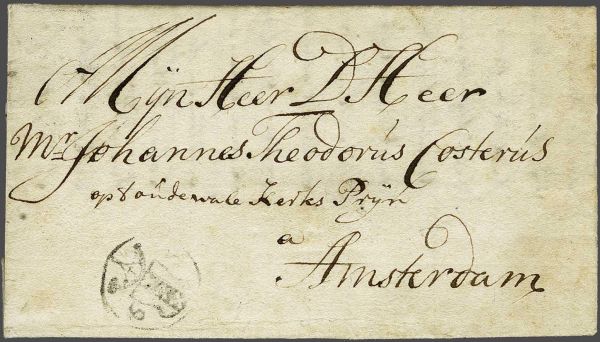 Mijn Heer D Heer
Mr Johannes Theodorús Costerús
op t oúde wale Kerks Pryn
a
Amsterdam